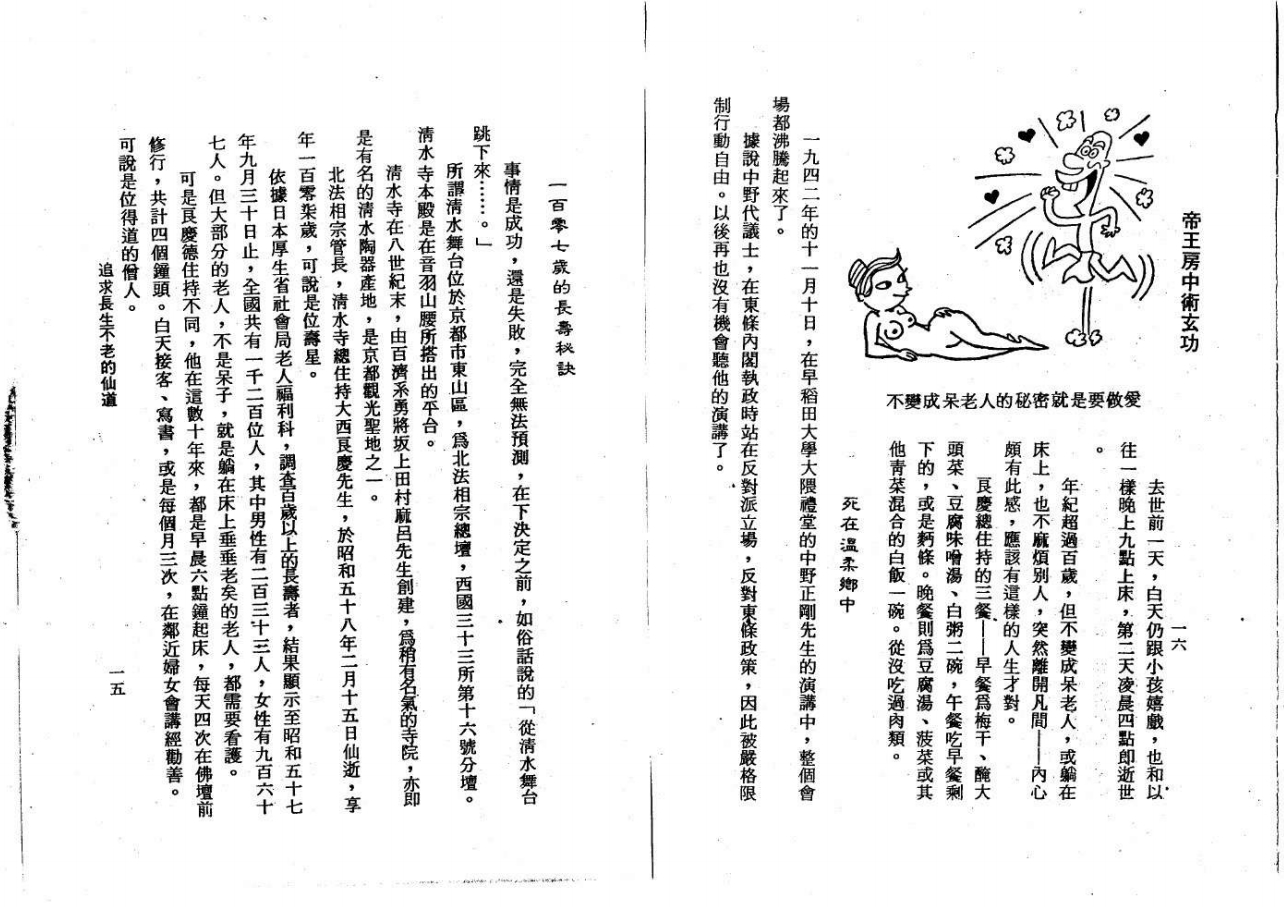 一百零七歲的長壽秘訣
事情是成功，還是失敗，完全無法預測，在下決定之前，如俗話說的「從清水舞台
跳下來……。」
所謂清水舞台位於京都市東山區，爲北法相宗總壇，西國三十三所第十六號分壇。
清水寺本殿是在音羽山腰所搭出的平台。
清水寺在八世紀末，由百濟系勇將坂上田村麻呂先生創建，爲稍有名氣的寺院，亦即
是有名的清水陶器產地，是京都觀光聖地之一。
北法相宗管長，清水寺總住持大西良慶先生，於昭和五十八年二月十五日仙逝，享
年一百零柒歲，可說是位壽星。
依據日本厚生省社會局老人福利科，調查百歲以上的長壽者，結果顯示至昭和五十七
年九月三十日止，全國共有一千二百位人，其中男性有二百三十三人，女性有九百六十
七人。但大部分的老人，不是呆子，就是躺在床上垂垂老矣的老人，都需要看護。
可是良慶德住持不同，他在這數十年來，都是早晨六點鐘起床，每天四次在佛壇前
修行，共計四個鐘頭。白天接客、寫書，或是每個月三次，在鄰近婦女會講經勸善。
可說是位得道的僧人。
追求長生不老的仙道
一五
帝王房中術玄功
一六
不變成呆老人的秘密就是要做愛
去世前一天，白天仍跟小孩嬉戲，也和以
往一樣晚上九點上床，第二天凌晨四點即逝世
。
年紀超過百歲，但不變成呆老人，或躺在
床上，也不麻煩別人，突然離開凡間——內心
頗有此感，應該有這樣的人生才對。
良慶總住持的三餐——早餐爲梅干、醃大
頭菜、豆腐味噌湯、白粥二碗，午餐吃早餐剩
下的，或是麪條。晚餐則爲豆腐湯、菠菜或其
他靑菜混合的白飯一碗。從沒吃過肉類。
死在溫柔鄉中
一九四二年的十一月十日，在早稻田大學大隈禮堂的中野正剛先生的演講中，整個會
場都沸騰起來了。
據說中野代議士，在東條內閣執政時站在反對派立場，反對東條政策，因此被嚴格限
制行動自由。以後再也沒有機會聽他的演講了。